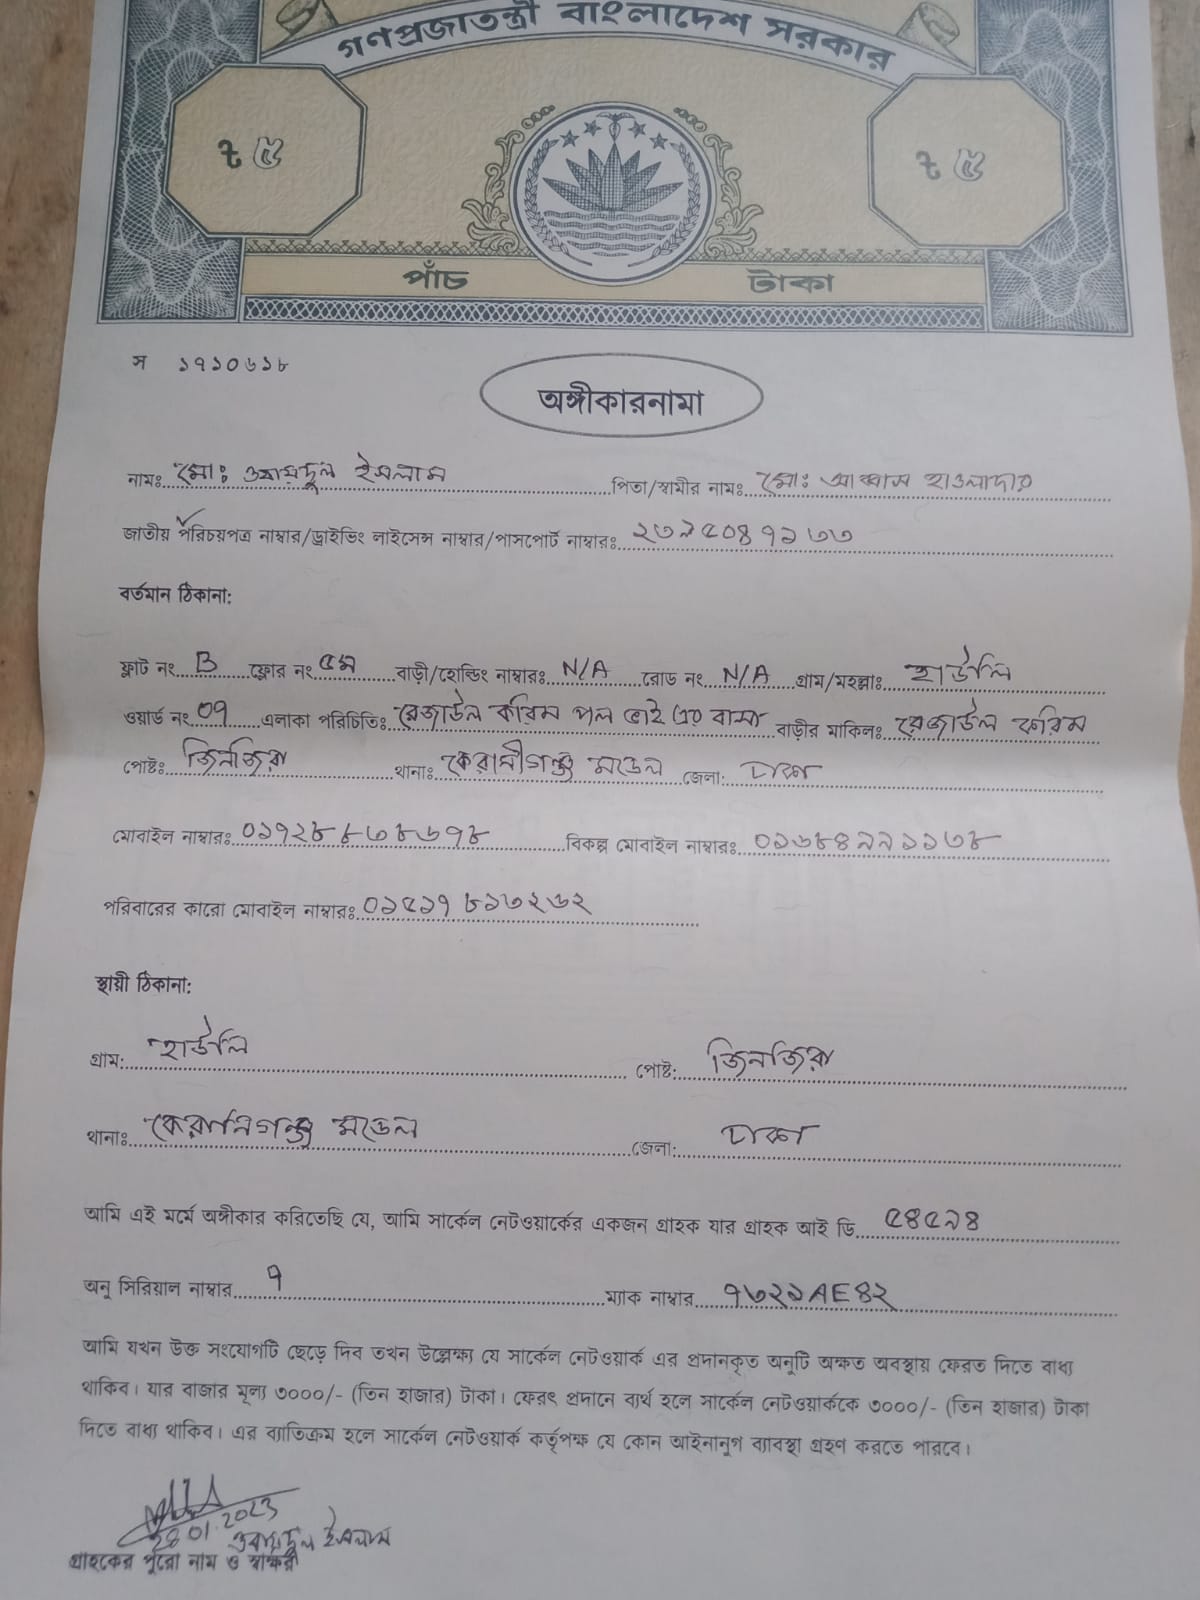 গণপ্রজাতন্ত্রী বাংলাদেশ সরকার
৳ ৫ ৳ ৫
পাঁচ টাকা
স ১৭১০৬১৮
অঙ্গীকারনামা
নামঃ মোঃ ওবায়দুল ইসলাম পিতা/স্বামীর নামঃ মোঃ আব্বাস হাওলাদার
জাতীয় পরিচয়পত্র নাম্বার/ড্রাইভিং লাইসেন্স নাম্বার/পাসপোর্ট নাম্বারঃ ২৩৯৫০৪৭১৩৩
বর্তমান ঠিকানা:
ফ্লাট নং B ফ্লোর নং ৫ম বাড়ী/হোল্ডিং নাম্বারঃ N/A রোড নং N/A গ্রাম/মহল্লাঃ হাউলি
ওয়ার্ড নং 09 এলাকা পরিচিতিঃ রেজাউল করিম পল ভাই এর বাসা বাড়ীর মালিকঃ রেজাউল করিম
পোষ্টঃ জিনজিরা থানাঃ কেরানীগঞ্জ মডেল জেলা: ঢাকা
মোবাইল নাম্বারঃ ০১৭২৮৮৩৮৬৭৮ বিকল্প মোবাইল নাম্বারঃ ০১৬৮৪৯৯১১৩৮
পরিবারের কারো মোবাইল নাম্বারঃ ০১৫১৭৮১৩২৬২
স্থায়ী ঠিকানা:
গ্রাম: হাউলি পোষ্ট: জিনজিরা
থানাঃ কেরানিগঞ্জ মডেল জেলা: ঢাকা
আমি এই মর্মে অঙ্গীকার করিতেছি যে, আমি সার্কেল নেটওয়ার্কের একজন গ্রাহক যার গ্রাহক আই ডি ৫৪৫৯৪
অনু সিরিয়াল নাম্বার ৭ ম্যাক নাম্বার ৭৬২১AE৪২
আমি যখন উক্ত সংযোগটি ছেড়ে দিব তখন উল্লেক্ষ্য যে সার্কেল নেটওয়ার্ক এর প্রদানকৃত অনুটি অক্ষত অবস্থায় ফেরত দিতে বাধ্য
থাকিব। যার বাজার মূল্য ৩০০০/- (তিন হাজার) টাকা। ফেরৎ প্রদানে ব্যর্থ হলে সার্কেল নেটওয়ার্ককে ৩০০০/- (তিন হাজার) টাকা
দিতে বাধ্য থাকিব। এর ব্যাতিক্রম হলে সার্কেল নেটওয়ার্ক কর্তৃপক্ষ যে কোন আইনানুগ ব্যাবস্থা গ্রহণ করতে পারবে।
28.01.2023
ওবায়দুল ইসলাম
গ্রাহকের পুরো নাম ও স্বাক্ষর